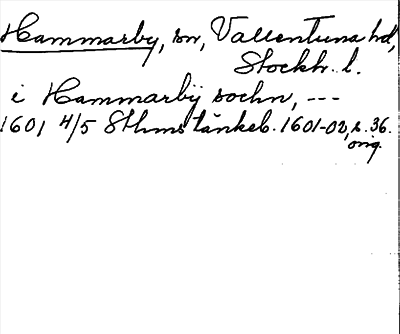 Hammarby, sn, Vallentuna hd,
Stockh. l.
i Hammarbÿ sochn, ---
1601 4/5 Sthms tänkeb. 1601-02, s. 36.
orig.